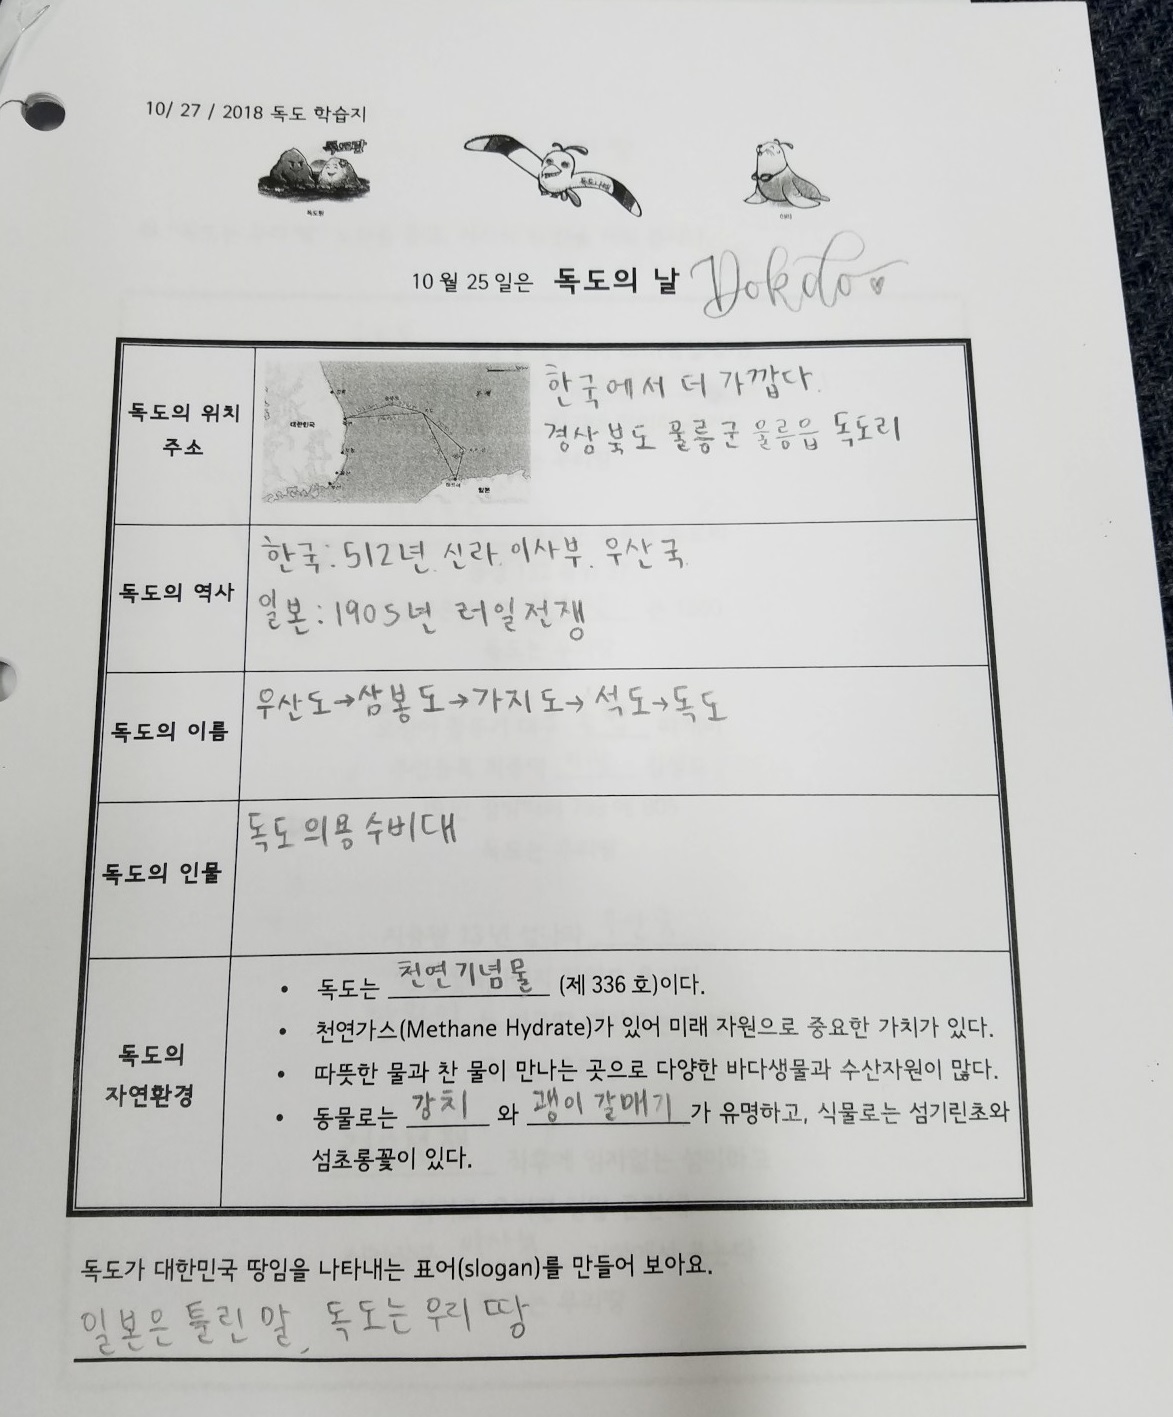 10/ 27 / 2018 독도 학습지
10 월 25 일은 독도의 날 Dokdo
독도의 위치
주소
대한민국
일본
한국에서 더 가깝다.
경상북도 울릉군 울릉읍 독도리
독도의 역사
한국: 512년. 신라. 이사부. 우산국.
일본: 1905년 러일전쟁
독도의 이름
우산도→삼봉도→가지도→석도→독도
독도의 인물
독도의용수비대
독도의
자연환경
• 독도는 천연기념물 (제 336 호)이다.
• 천연가스(Methane Hydrate)가 있어 미래 자원으로 중요한 가치가 있다.
• 따뜻한 물과 찬 물이 만나는 곳으로 다양한 바다생물과 수산자원이 많다.
• 동물로는 강치 와 괭이 갈매기 가 유명하고, 식물로는 섬기린초와
섬초롱꽃이 있다.
독도가 대한민국 땅임을 나타내는 표어(slogan)를 만들어 보아요.
일본은 틀린 말, 독도는 우리 땅